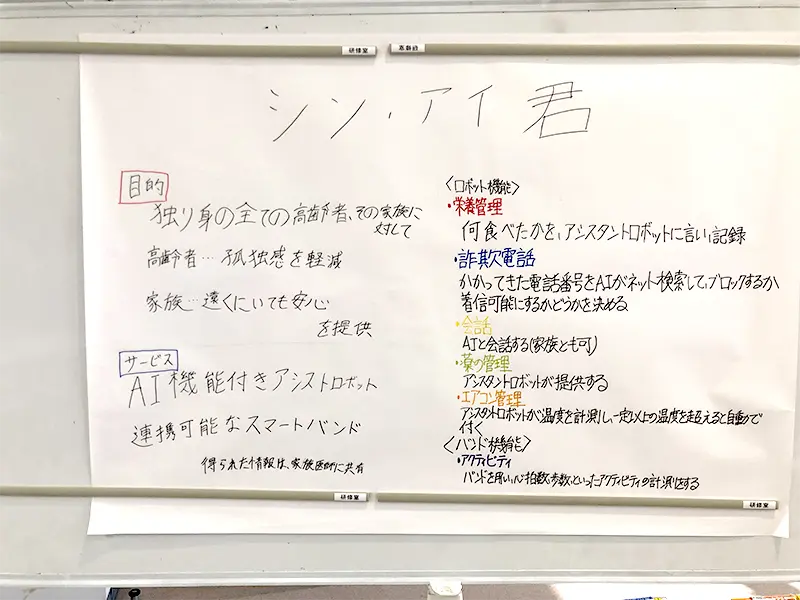 研修室
シン・アイ君
目的
独り身の全ての高齢者、その家族に
対して
高齢者…孤独感を軽減
家族…遠くにいても安心
を提供
サービス
AI機能付きアシストロボット
連携可能なスマートバンド
得られた情報は、家族医師に共有
〈ロボット機能〉
・栄養管理
何食べたかを、アシスタントロボットに言い、記録
・詐欺電話
かかってきた電話番号をAIがネット検索して、ブロックするか
着信可能にするかどうかを決める
・会話
AIと会話する(家族とも可)
・薬の管理
アシスタントロボットが提供する
・エアコン管理
アシスタントロボットが温度を計測し、一定以上の温度を超えると自動で
付く
〈バンド機能〉
・アクティビティ
バンドを用い、心拍数、歩数、といったアクティビティの計測をする
研修室
研修室